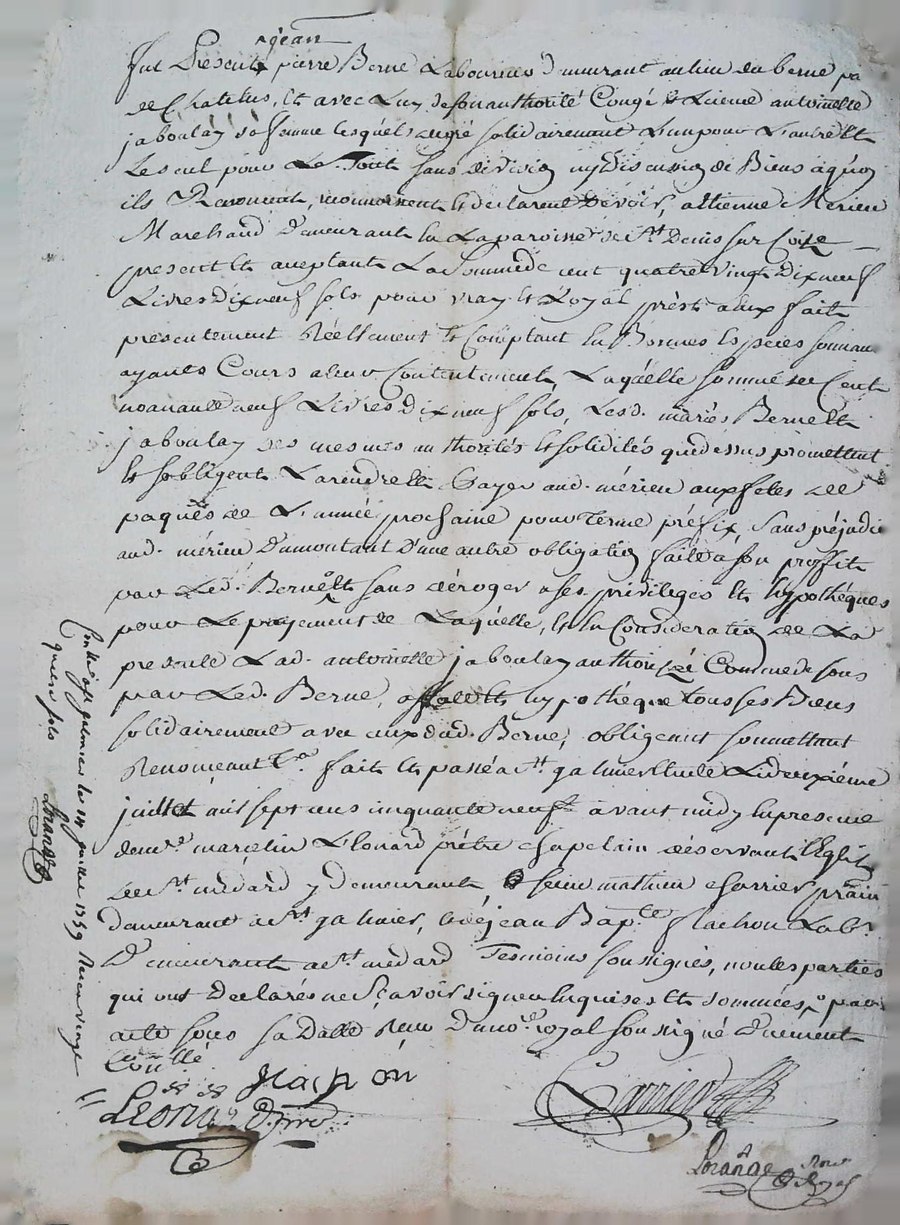 jean
fut présent pierre Berne Laboureur demeurant au lieu du berne
de Chatelus, et avec Luy de son authorité Congé et Licence antoinette
jaboulay sa femme lesquels de gré solidairement L'un pour L'autre et
Le seul pour Le Tout sans division ny discussion de Biens a quoy
ils Renoncent, reconnoissent et déclarent devoir, a Etienne Mérieu
Marchand demeurant en La paroisse de St Denis sur Coize
present et aceptant La Somme de cent quatre vingt dix neuf
Livres dix neuf sols pour vray et Loyal prest a eux fait
presentement Réellement et Comptant en Bonnes Espéces sonnan
ayants Cours a leur Contentement, Laquelle somme de Cent
nonante neuf Livres dix neuf sols, Lesd. mariés Berne et
jaboulay des mesmes authorités et solidités que dessus promettent
et s'obligent La rendre et Payer aud. mérieu aux fetes de
paques de L'année prochaine pour Terme préfix, sans préjudice
aud. mérieu du montant d'une autre obligation faite a son proffit
par Led. Berne et sans déroger a ses priviléges et hypothéques
pour Le payement de Laquelle, et en Consideration de La
presente Lad. antoinette jaboulay authorisée Comme dessus
par Led. Berne, affecte et hypothéque tous ses Biens
solidairement avec ceux dud. Berne, obligeant soumettant
Renonceant &a fait et passé a St galmier Etude Le deuxiéme
juillet mil sept cens cinquante neuf avant midy en presence
de mre marcelin Léonard prétre chapelain déservant L'Eglise
de St médard y demeurant, sieur mathieu Carrier praticien
demeurant a St galmier, et de jean Bapte flachon Labr
Demeurant a St medard Tesmoins sousignés, non les parties
qui ont déclarés ne sçavoir signer Enquises et sommées, par
acte sous sa datte Reçu du nore royal sousigné duement
Conllé
flachon
Leonard ptre
Carrier
Lorange nore Royal
Conllé a St galmier le juillet 1759 Reçu vingt
quatre sols
Lorange